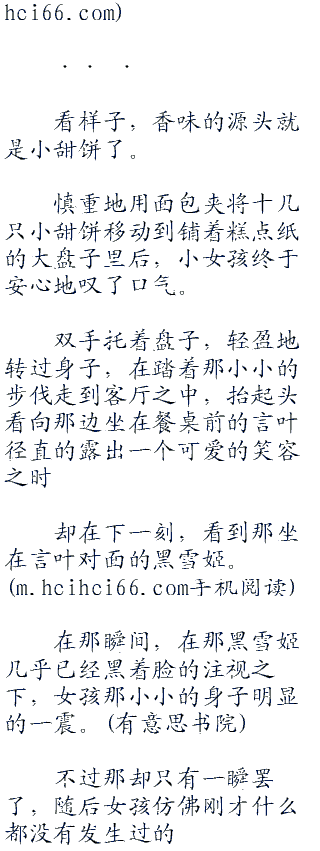 hci66.com)
. . .
看样子，香味的源头就
是小甜饼了。
慎重地用面包夹将十几
只小甜饼移动到铺着糕点纸
的大盘子里后，小女孩终于
安心地叹了口气。
双手托着盘子，轻盈地
转过身子，在踏着那小小的
步伐走到客厅之中，抬起头
看向那边坐在餐桌前的言叶
径直的露出一个可爱的笑容
之时
却在下一刻，看到那坐
在言叶对面的黑雪姬。
(m.hcihci66.com手机阅读)
在那瞬间，在那黑雪姬
几乎已经黑着脸的注视之
下，女孩那小小的身子明显
的一震。(有意思书院)
不过那却只有一瞬罢
了，随后女孩仿佛刚才什么
都没有发生过的